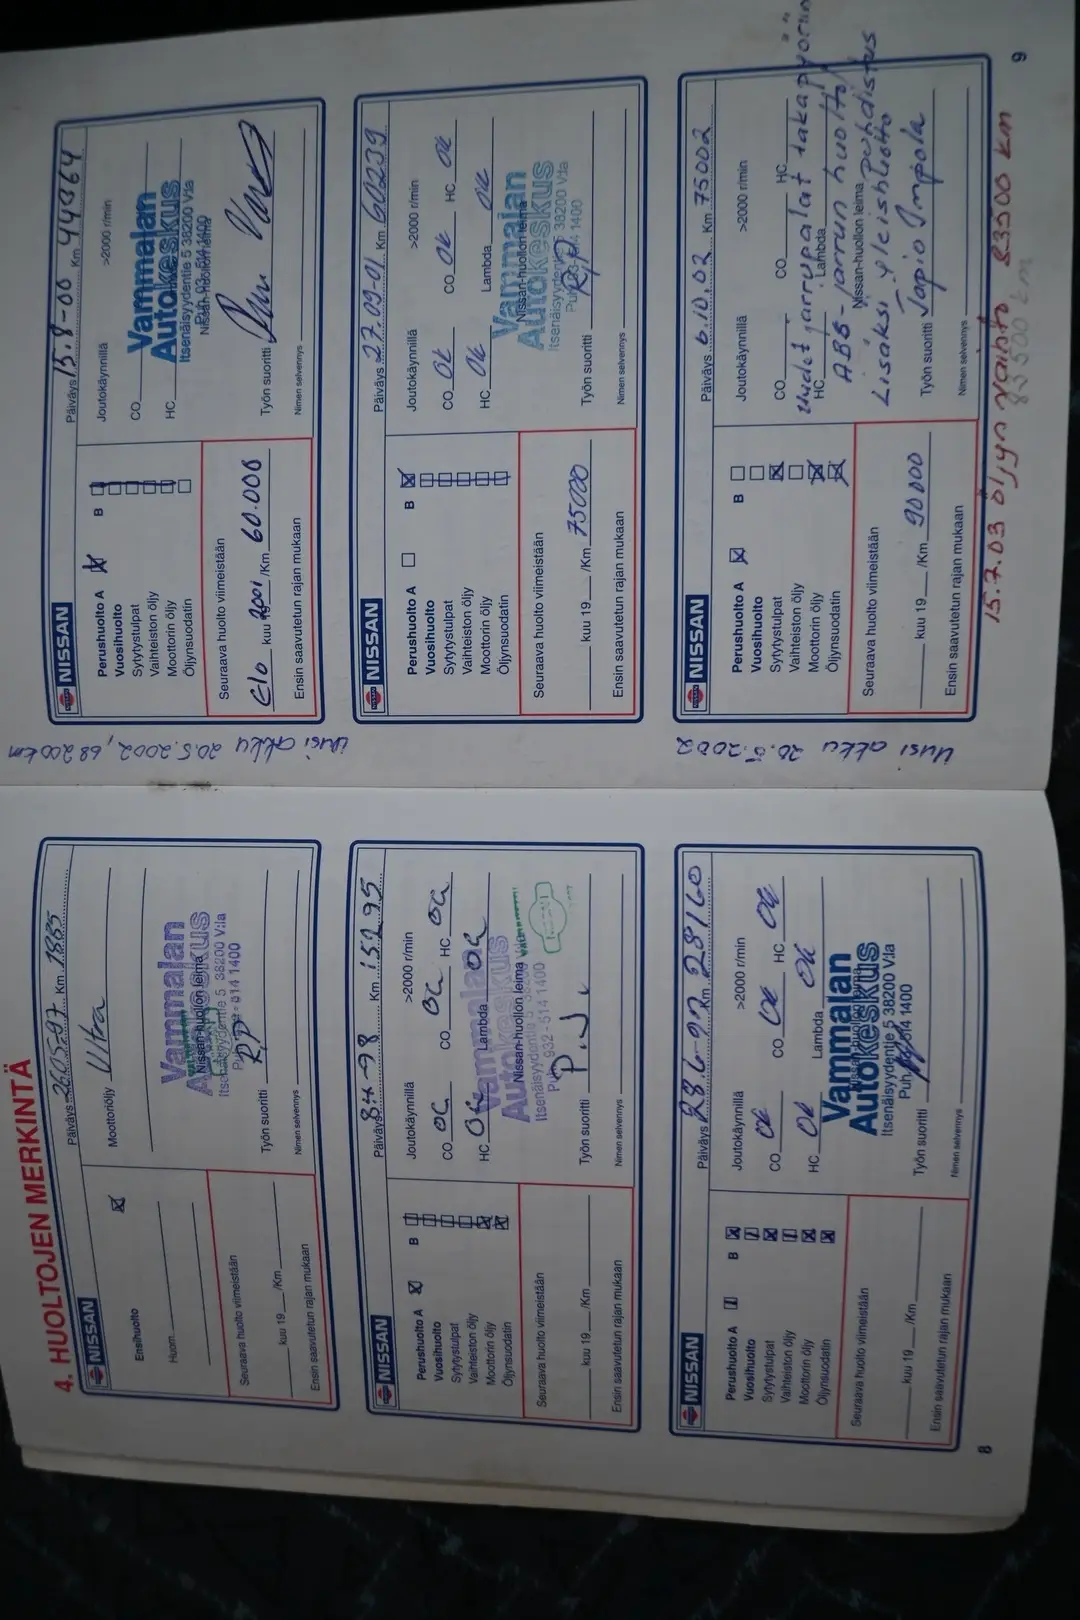 4. HUOLTOJEN MERKINTÄ
NISSAN
Päiväys 26.05-97 Km 1885
Ensihuolto
Moottoriöljy Ultra
Huom.
Vammalan
Autokeskus
Nissan-huollon leima
Itsenäisyydentie 5 38200 V:la
514 1400
Seuraava huolto viimeistään
kuu 19 /Km
Työn suoritti RP
Ensin saavutetun rajan mukaan
Nimen selvennys
NISSAN
Päiväys 8.4-98 Km 15295
Perushuolto A B
Vuosihuolto
Sytytystulpat
Vaihteiston öljy
Moottorin öljy
Öljynsuodatin
Joutokäynnillä >2000 r/min
CO OK CO OK HC OK
HC OK Lambda OK
Vammalan
Autokeskus
Nissan-huollon leima
Itsenäisyydentie 5 38200
Puh. 932-514 1400
Seuraava huolto viimeistään
kuu 19 /Km
Työn suoritti P.J
Ensin saavutetun rajan mukaan
Nimen selvennys
NISSAN
Päiväys 28.6-99 Km 28160
Perushuolto A B
Vuosihuolto
Sytytystulpat
Vaihteiston öljy
Moottorin öljy
Öljynsuodatin
Joutokäynnillä >2000 r/min
CO OK CO OK HC OK
HC OK Lambda OK
Vammalan
Autokeskus
Itsenäisyydentie 5 38200 V:la
Puh. 514 1400
Seuraava huolto viimeistään
kuu 19 /Km
Työn suoritti
Ensin saavutetun rajan mukaan
Nimen selvennys
8
NISSAN
Päiväys 15.8-00 Km 44364
Perushuolto A B
Vuosihuolto
Sytytystulpat
Vaihteiston öljy
Moottorin öljy
Öljynsuodatin
Joutokäynnillä >2000 r/min
CO
HC
Vammalan
Autokeskus
Itsenäisyydentie 5 38200 V:la
Puh. 03-514 1400
Nissan-huollon leima
Seuraava huolto viimeistään
Elo kuu 2001 /Km 60.000
Työn suoritti
Ensin saavutetun rajan mukaan
Nimen selvennys
Uusi akku 20.5.2002, 68200km
NISSAN
Päiväys 27.09-01 Km 60239
Perushuolto A B
Vuosihuolto
Sytytystulpat
Vaihteiston öljy
Moottorin öljy
Öljynsuodatin
Joutokäynnillä >2000 r/min
CO OK CO OK HC OK
HC OK Lambda OK
Vammalan
Nissan-huollon leima
Autokeskus
Itsenäisyydentie 5 38200 V:la
Puh. 03-514 1400
Seuraava huolto viimeistään
kuu 19 /Km 75000
Työn suoritti RP
Ensin saavutetun rajan mukaan
Nimen selvennys
Uusi akku 20.5.2002
NISSAN
Päiväys 6.10.02 Km 75002
Perushuolto A B
Vuosihuolto
Sytytystulpat
Vaihteiston öljy
Moottorin öljy
Öljynsuodatin
Joutokäynnillä >2000 r/min
CO CO HC
Uudet jarrupalat takapyöriin
HC Lambda
ABB-jarrun huolto/
Nissan-huollon leima puhdistus
Lisäksi yleishuolto
Seuraava huolto viimeistään
kuu 19 /Km 90000
Työn suoritti Tapio Impola
Ensin saavutetun rajan mukaan
Nimen selvennys
15.7.03 öljyn vaihto 83500 km
83500 km
9